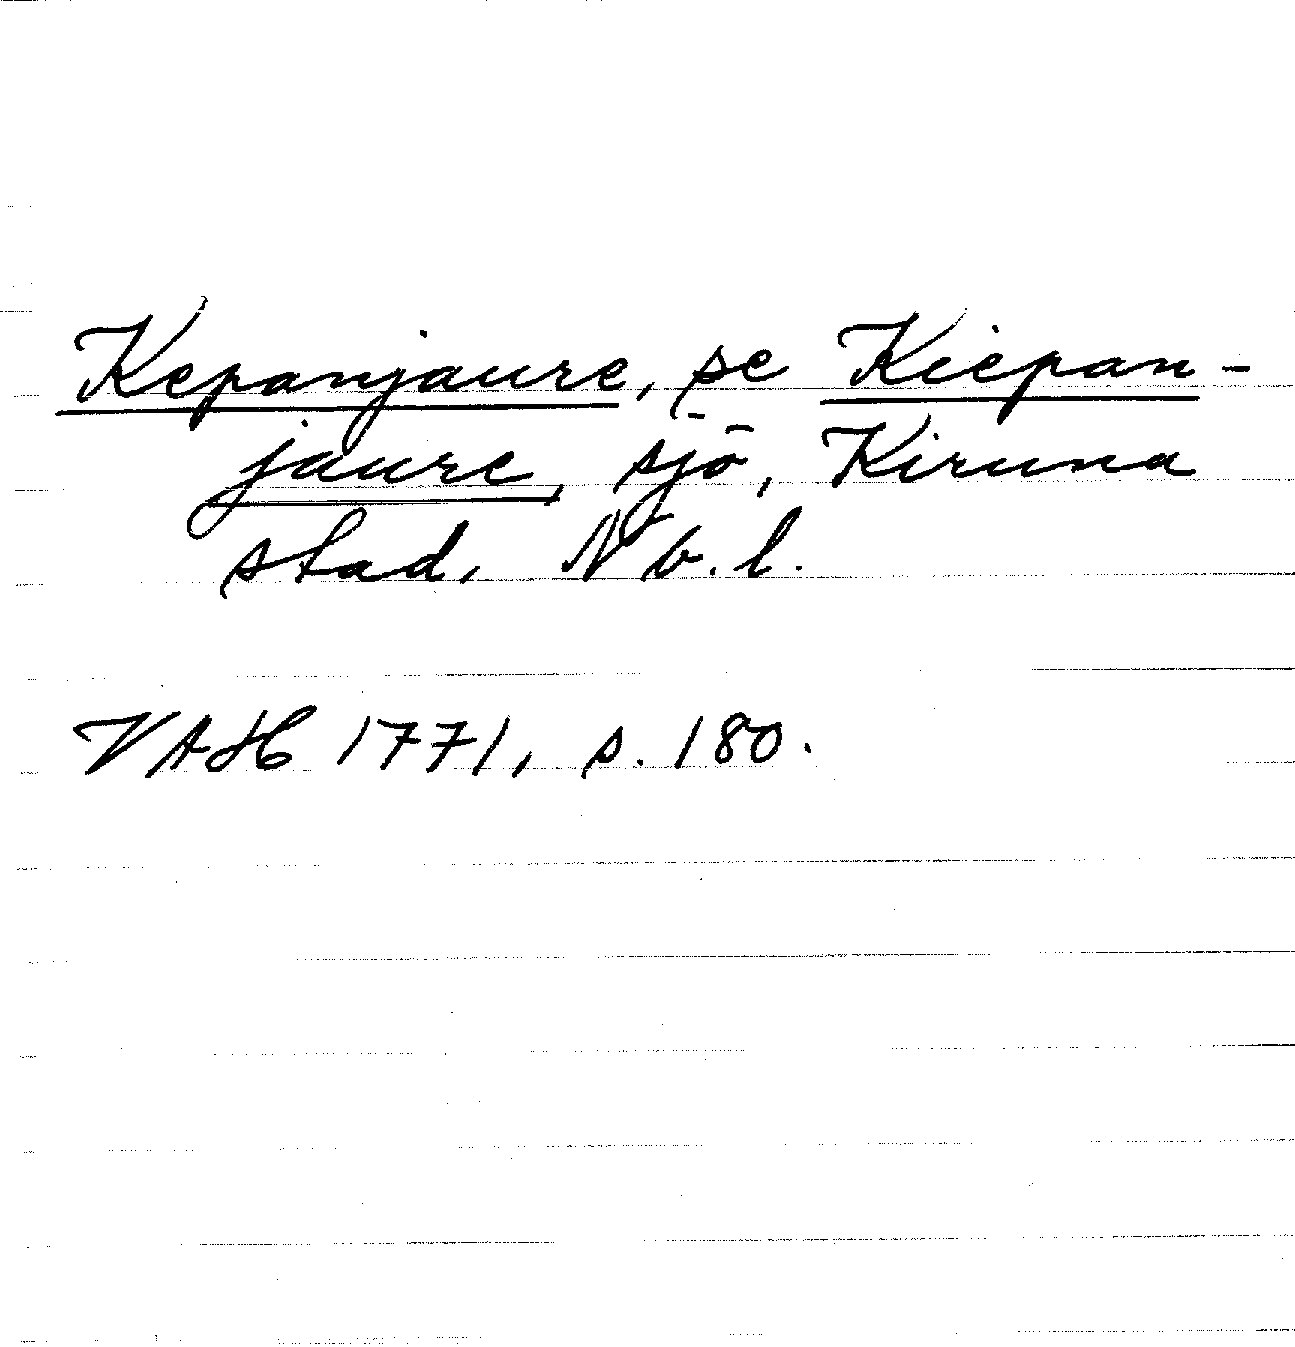 Kepanjaure, se Kiepan-
jaure, sjö, Kiruna
stad, Nb.l.
VAH 1771, s. 180.